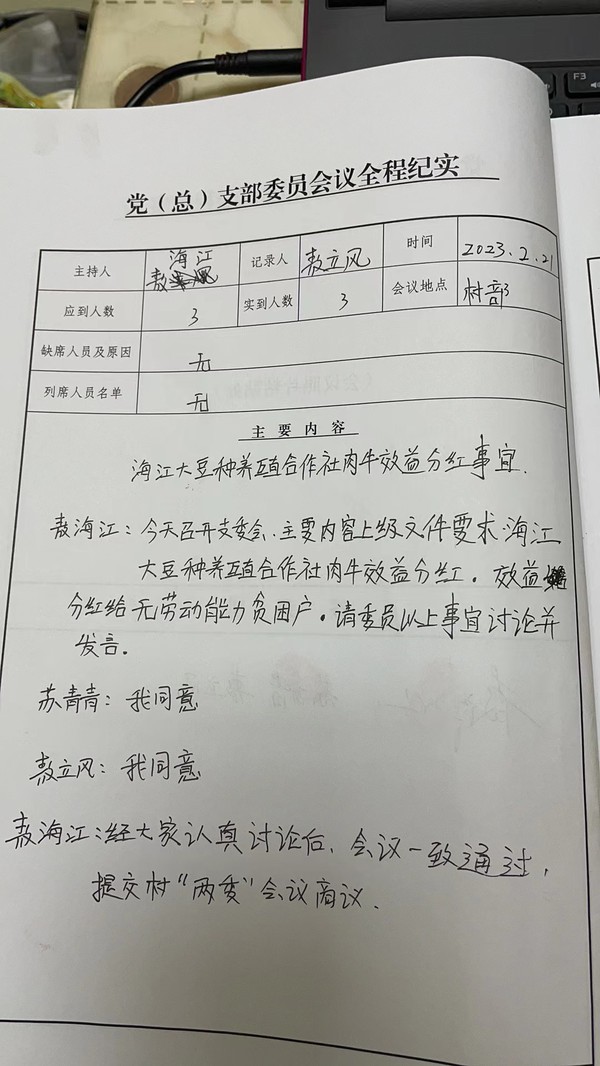 F3
党（总）支部委员会议全程纪实
主持人 敖海江 记录人 敖立风 时间 2023.2.21
应到人数 3 实到人数 3 会议地点 村部
缺席人员及原因 无
列席人员名单 无
主要内容
海江大豆种养殖合作社肉牛效益分红事宜.
敖海江：今天召开支委会.主要内容上级文件要求.海江
大豆种养殖合作社肉牛效益分红.效益
分红给无劳动能力贫困户.请委员以上事宜讨论并
发言.
苏青青：我同意
敖立风：我同意
敖海江：经大家认真讨论后.会议一致通过,
提交村“两委”会议商议.